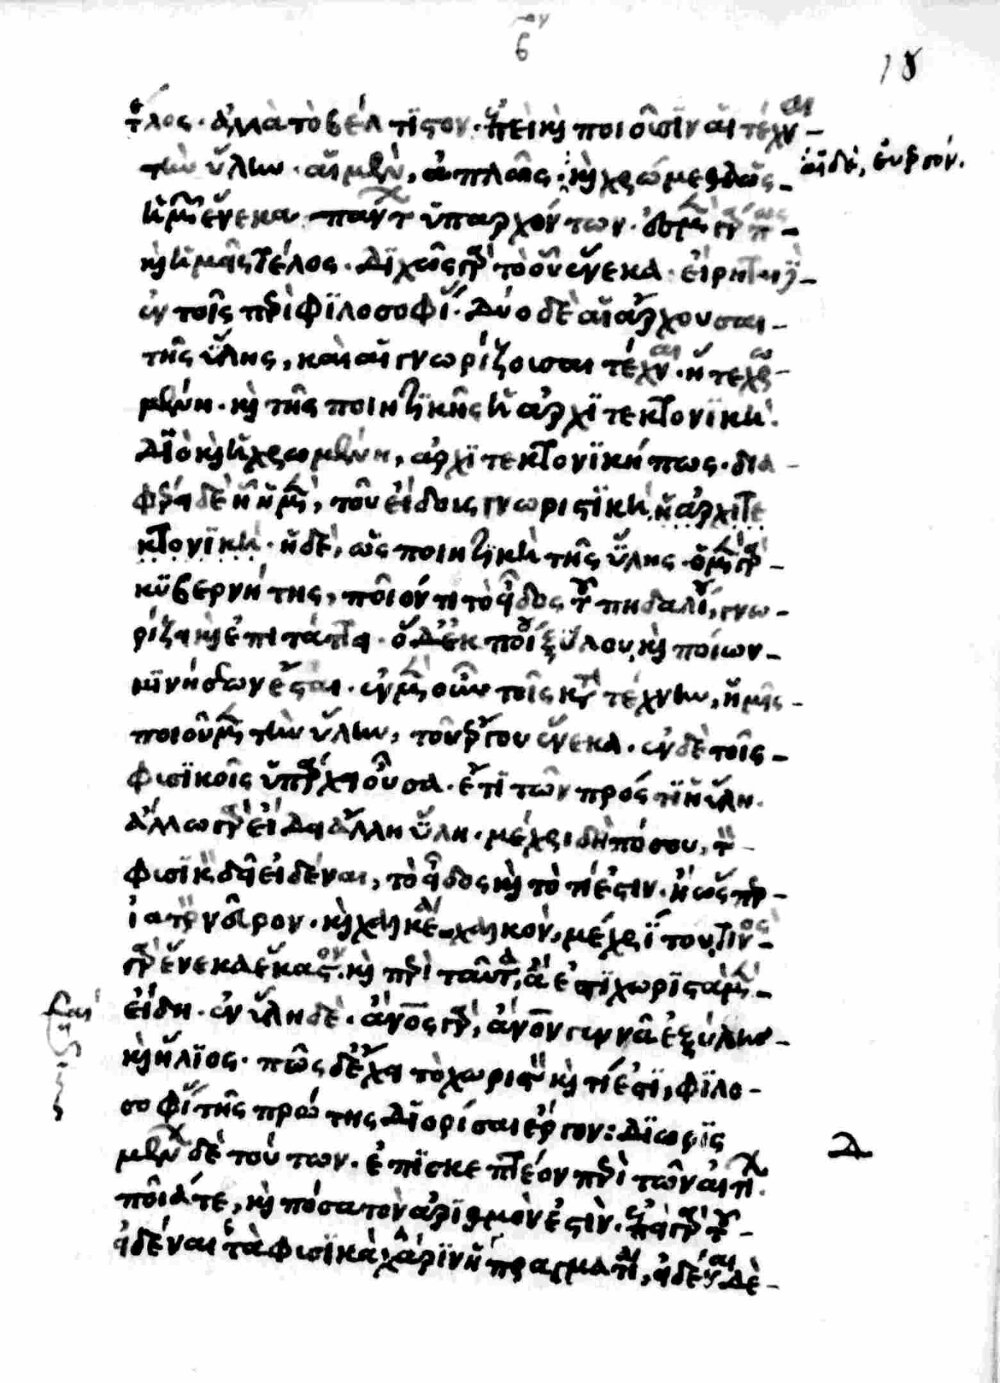 βον
18
τέλος· ἀλλὰ τὸ βέλτιστον· ἐπεὶ καὶ ποιοῦσιν αἱ τέχναι
τὴν ὕλην· αἱ μὲν, ἁπλῶς· καὶ χρώμεθα ὡς
αἱ δὲ, εὐεργόν.
ἡμῶν ἕνεκα πάντων ὑπαρχόντων· ἐσμὲν γάρ πως
καὶ ἡμεῖς τέλος· διχῶς γὰρ τὸ οὗ ἕνεκα· εἴρηται
ἐν τοῖς περὶ φιλοσοφίας· δύο δὲ αἱ ἄρχουσαι
τῆς ὕλης, καὶ αἱ γνωρίζουσαι τέχναι· ἥ τε χρω
μένη· καὶ τῆς ποιητικῆς ἡ ἀρχιτεκτονική·
διὸ καὶ ἡ χρωμένη, ἀρχιτεκτονική πως· δια
φέρει δὲ ἡ μὲν, τοῦ εἴδους γνωριστική, ἡ ἀρχιτε
κτονική· ἡ δὲ, ὡς ποιητικὴ τῆς ὕλης· ὁ μὲν γὰρ
κυβερνήτης, ποῖόν τι τὸ εἶδος τοῦ πηδαλίου, γνω
ρίζει καὶ ἐπιτάττει· ὁ δ' ἐκ ποίου ξύλου καὶ ποίων
κινήσεων ἔσται· ἐν μὲν οὖν τοῖς κατὰ τέχνην, ἡμεῖς
ποιοῦμεν τὴν ὕλην, τοῦ ἔργου ἕνεκα· ἐν δὲ τοῖς
φυσικοῖς ὑπάρχει οὖσα· ἔτι τῶν πρός τι ἡ ὕλη·
ἄλλῳ γὰρ εἴδει ἄλλη ὕλη· μέχρι δὴ πόσου, τὸν
φυσικὸν δεῖ εἰδέναι, τὸ εἶδος καὶ τὸ τί ἐστιν· ἢ ὥσπερ
ἰατρὸν νεῦρον· καὶ χαλκέα χαλκόν, μέχρι του· τινὸς
γὰρ ἕνεκα ἕκαστον· καὶ περὶ ταῦτα, ἅ ἐστι χωριστὰ μὲν
εἴδη· ἐν ὕλῃ δέ· ἄνος γὰρ, ἄνον γεννᾶ ἐξ ὕλης
καὶ ἥλιος· πῶς δ' ἔχει τὸ χωριστὸν καὶ τί ἐστι, φιλο
σοφίας τῆς πρώτης διορίσαι ἔργον: Διωρισ
μένων δὲ τούτων· ἐπισκεπτέον περὶ τῶν αἰτίων·
ποῖά τε, καὶ πόσα τὸν ἀριθμὸν ἐστὶν· ἐπεὶ γὰρ τοῦ
εἰδέναι τὰ φυσικὰ χάριν ἡ πραγματεία, εἰδέναι δὲ